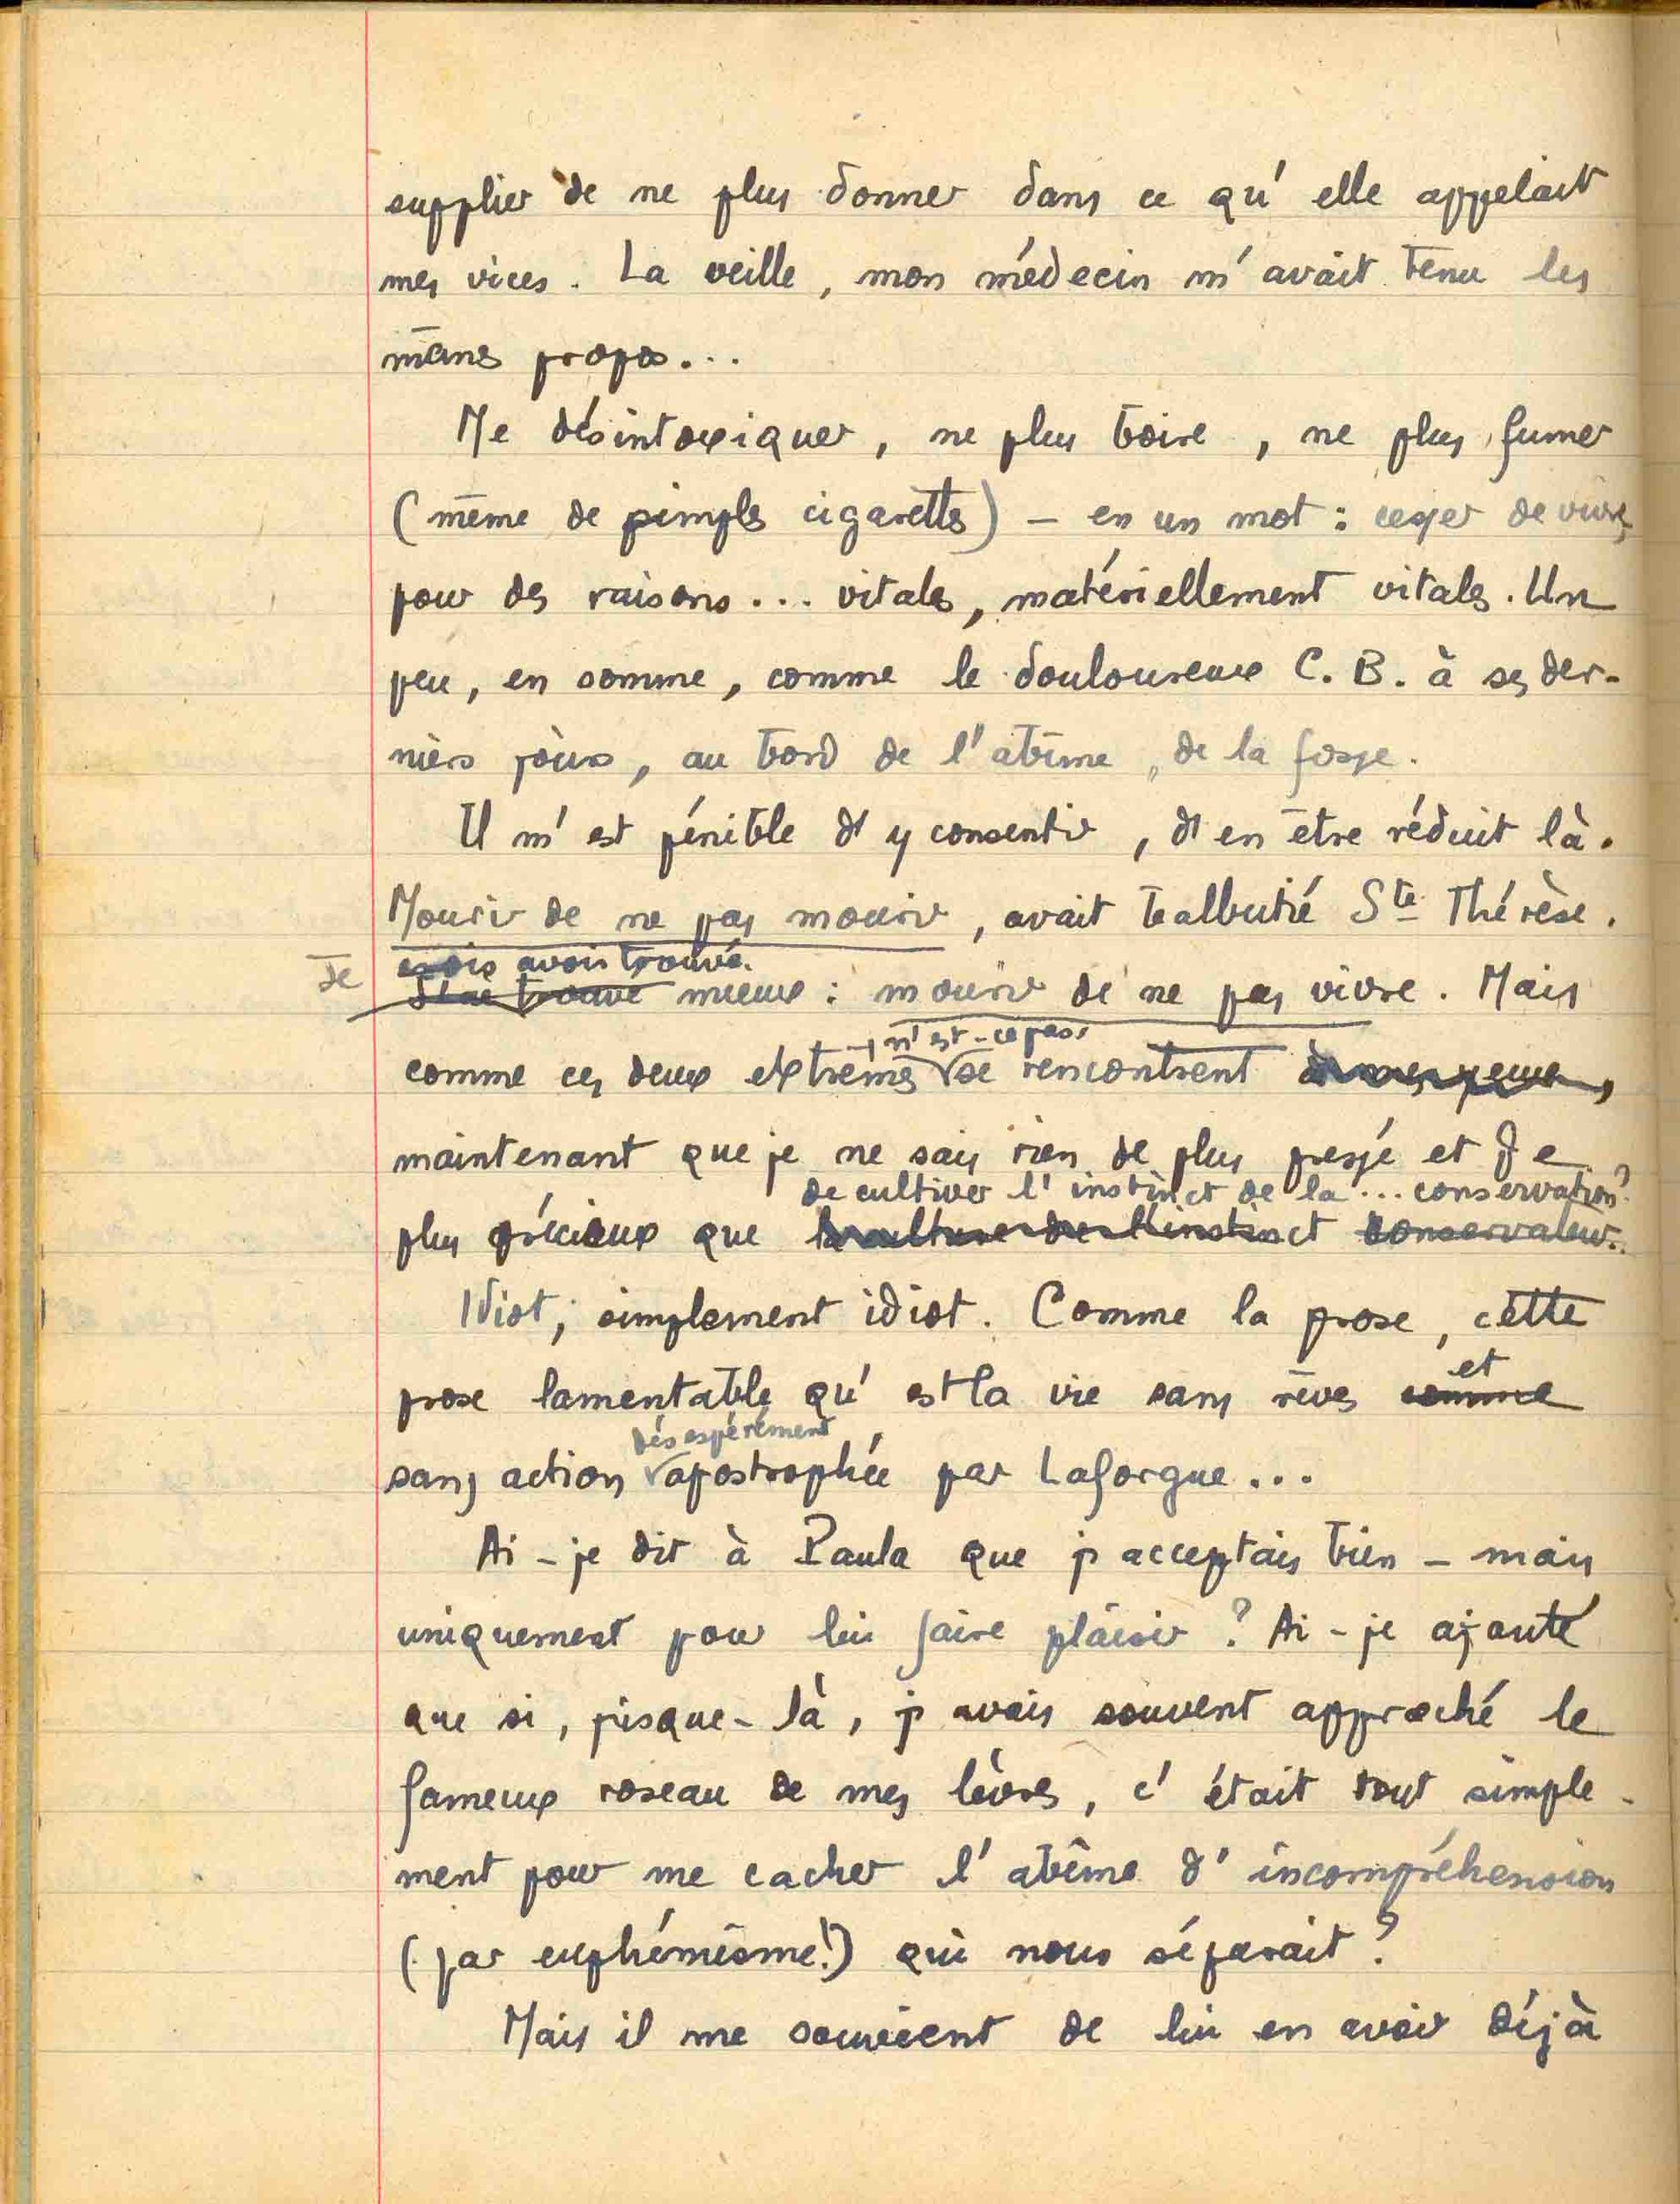 supplier de ne plus donner dans ce qu'elle appelait
mes vices. La veille, mon médecin m'avait tenu les
mêmes propos...
Me désintoxiquer, ne plus boire, ne plus fumer
(même de simples cigarettes) — en un mot : cesser de vivre,
pour des raisons... vitales, matériellement vitales. Un
peu, en somme, comme le douloureux C. B. à ses der-
niers jours, au bord de l'abîme, de la fosse.
Il m'est pénible d'y consentir, d'en être réduit là.
Mourir de ne pas mourir, avait balbutié Ste Thérèse.
Je crois avoir trouvé
J'ai trouvé mieux : mourir de ne pas vivre. Mais
, n'est-ce pas,
comme ces deux extrêmes se rencontrent à mes yeux,
maintenant que je ne sais rien de plus pressé et de
de cultiver l'instinct de la... conservation?
plus précieux que la culture de l'instinct conservateur..
Idiot, simplement idiot. Comme la prose, cette
et
prose lamentable qu'est la vie sans rêves comme
désespérément
sans action apostrophée par Laforgue...
Ai-je dit à Paula que j'acceptais bien — mais
uniquement pour lui faire plaisir ? Ai-je ajouté
que si, jusque-là, j'avais souvent approché le
fameux roseau de mes lèvres, c'était tout simple-
ment pour me cacher l'abîme d'incompréhension
(par euphémisme!) qui nous séparait ?
Mais il me souvient de lui en avoir déjà